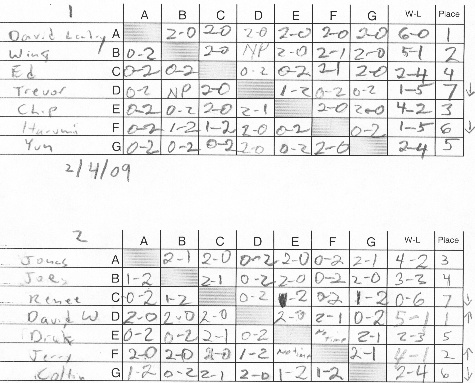 1 A B C D E F G W-L Place
David A 2-0 2-0 2-0 2-0 2-0 2-0 6-0 1
Wing B 0-2 2-0 NP 2-0 2-1 2-0 5-1 2
Ed C 0-2 0-2 0-2 0-2 2-1 2-0 2-4 4
Trevor D 0-2 NP 2-0 1-2 0-2 0-2 1-5 7 ↓
Chip E 0-2 0-2 2-0 2-1 2-0 2-0 4-2 3
Harumi F 0-2 1-2 1-2 2-0 0-2 0-2 1-5 6 ↓
Yun G 0-2 0-2 0-2 2-0 0-2 2-0 2-4 5
2/4/09
2 A B C D E F G W-L Place
Jonas A 2-1 2-0 0-2 2-0 0-2 2-1 4-2 3
Joes B 1-2 2-1 0-2 2-0 0-2 2-0 3-3 4
Renee C 0-2 1-2 0-2 -2 0-2 1-2 0-6 7 ↓
David W D 2-0 2-0 2-0 2-0 2-1 0-2 5-1 1 ↑
E 0-2 0-2 2-1 0-2 No Time 2-1 2-3 5
Jerry F 2-0 2-0 2-0 1-2 No time 2-1 4-1 2 ↑
Collin G 1-2 0-2 2-1 2-0 1-2 1-2 2-4 6 ↓